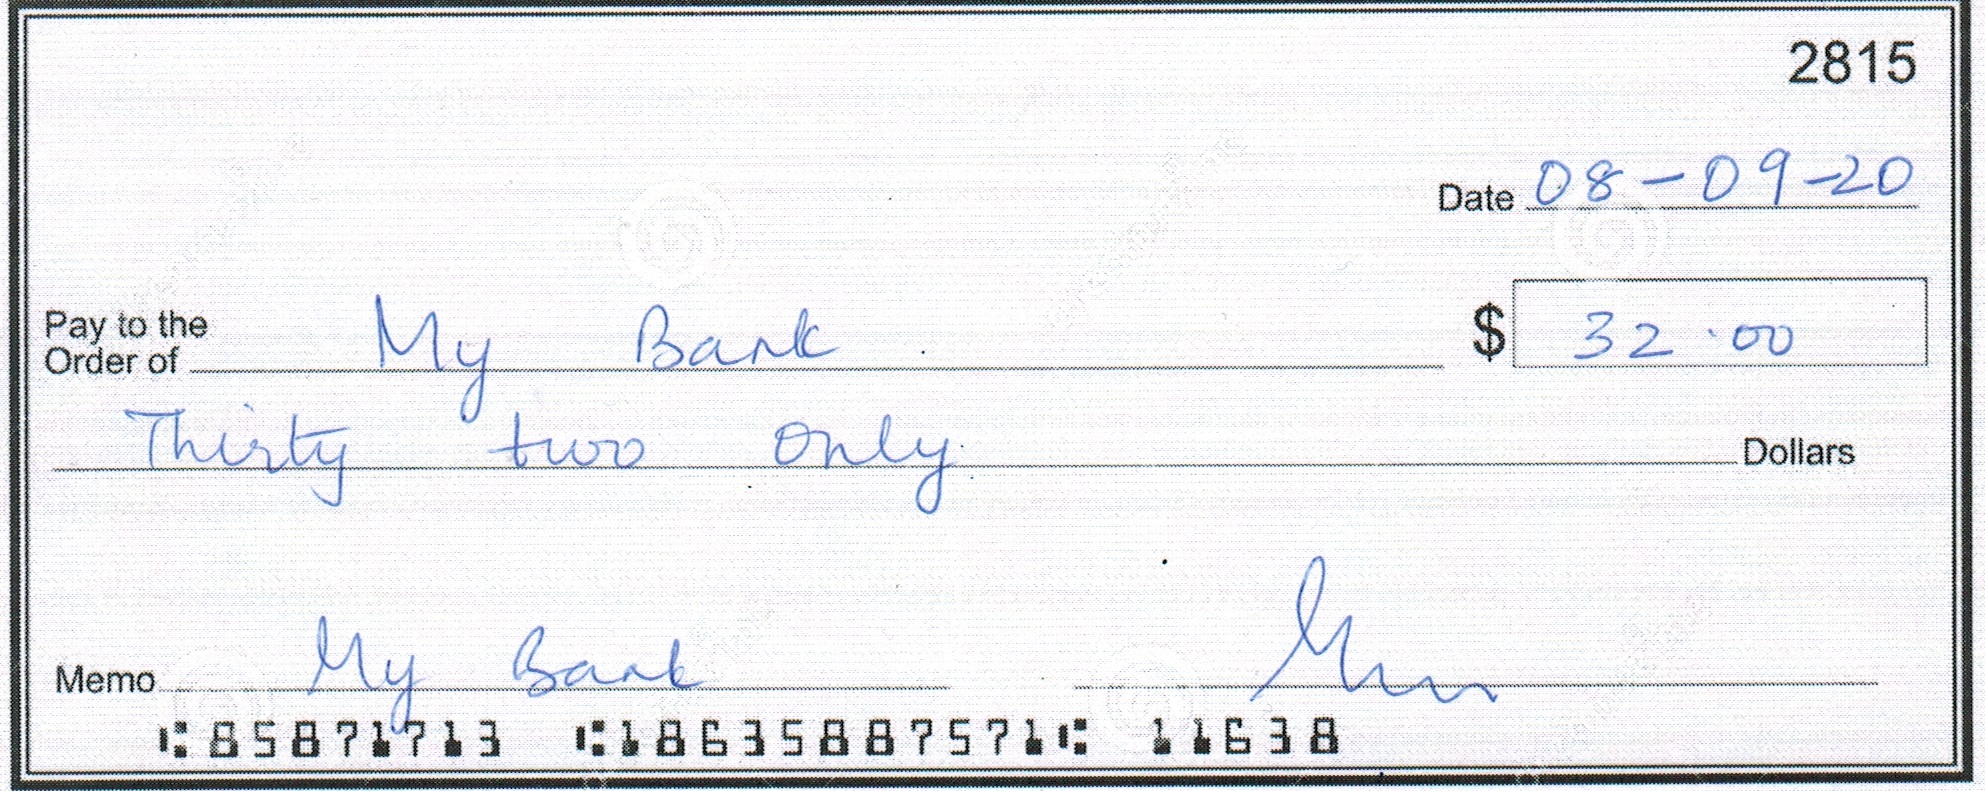 2815
Date 08-09-20
Pay to the
Order of My Bank
$ 32.00
Thirty two only Dollars
Memo My Bank
⑆85871713 ⑆18635887571⑆ 11638